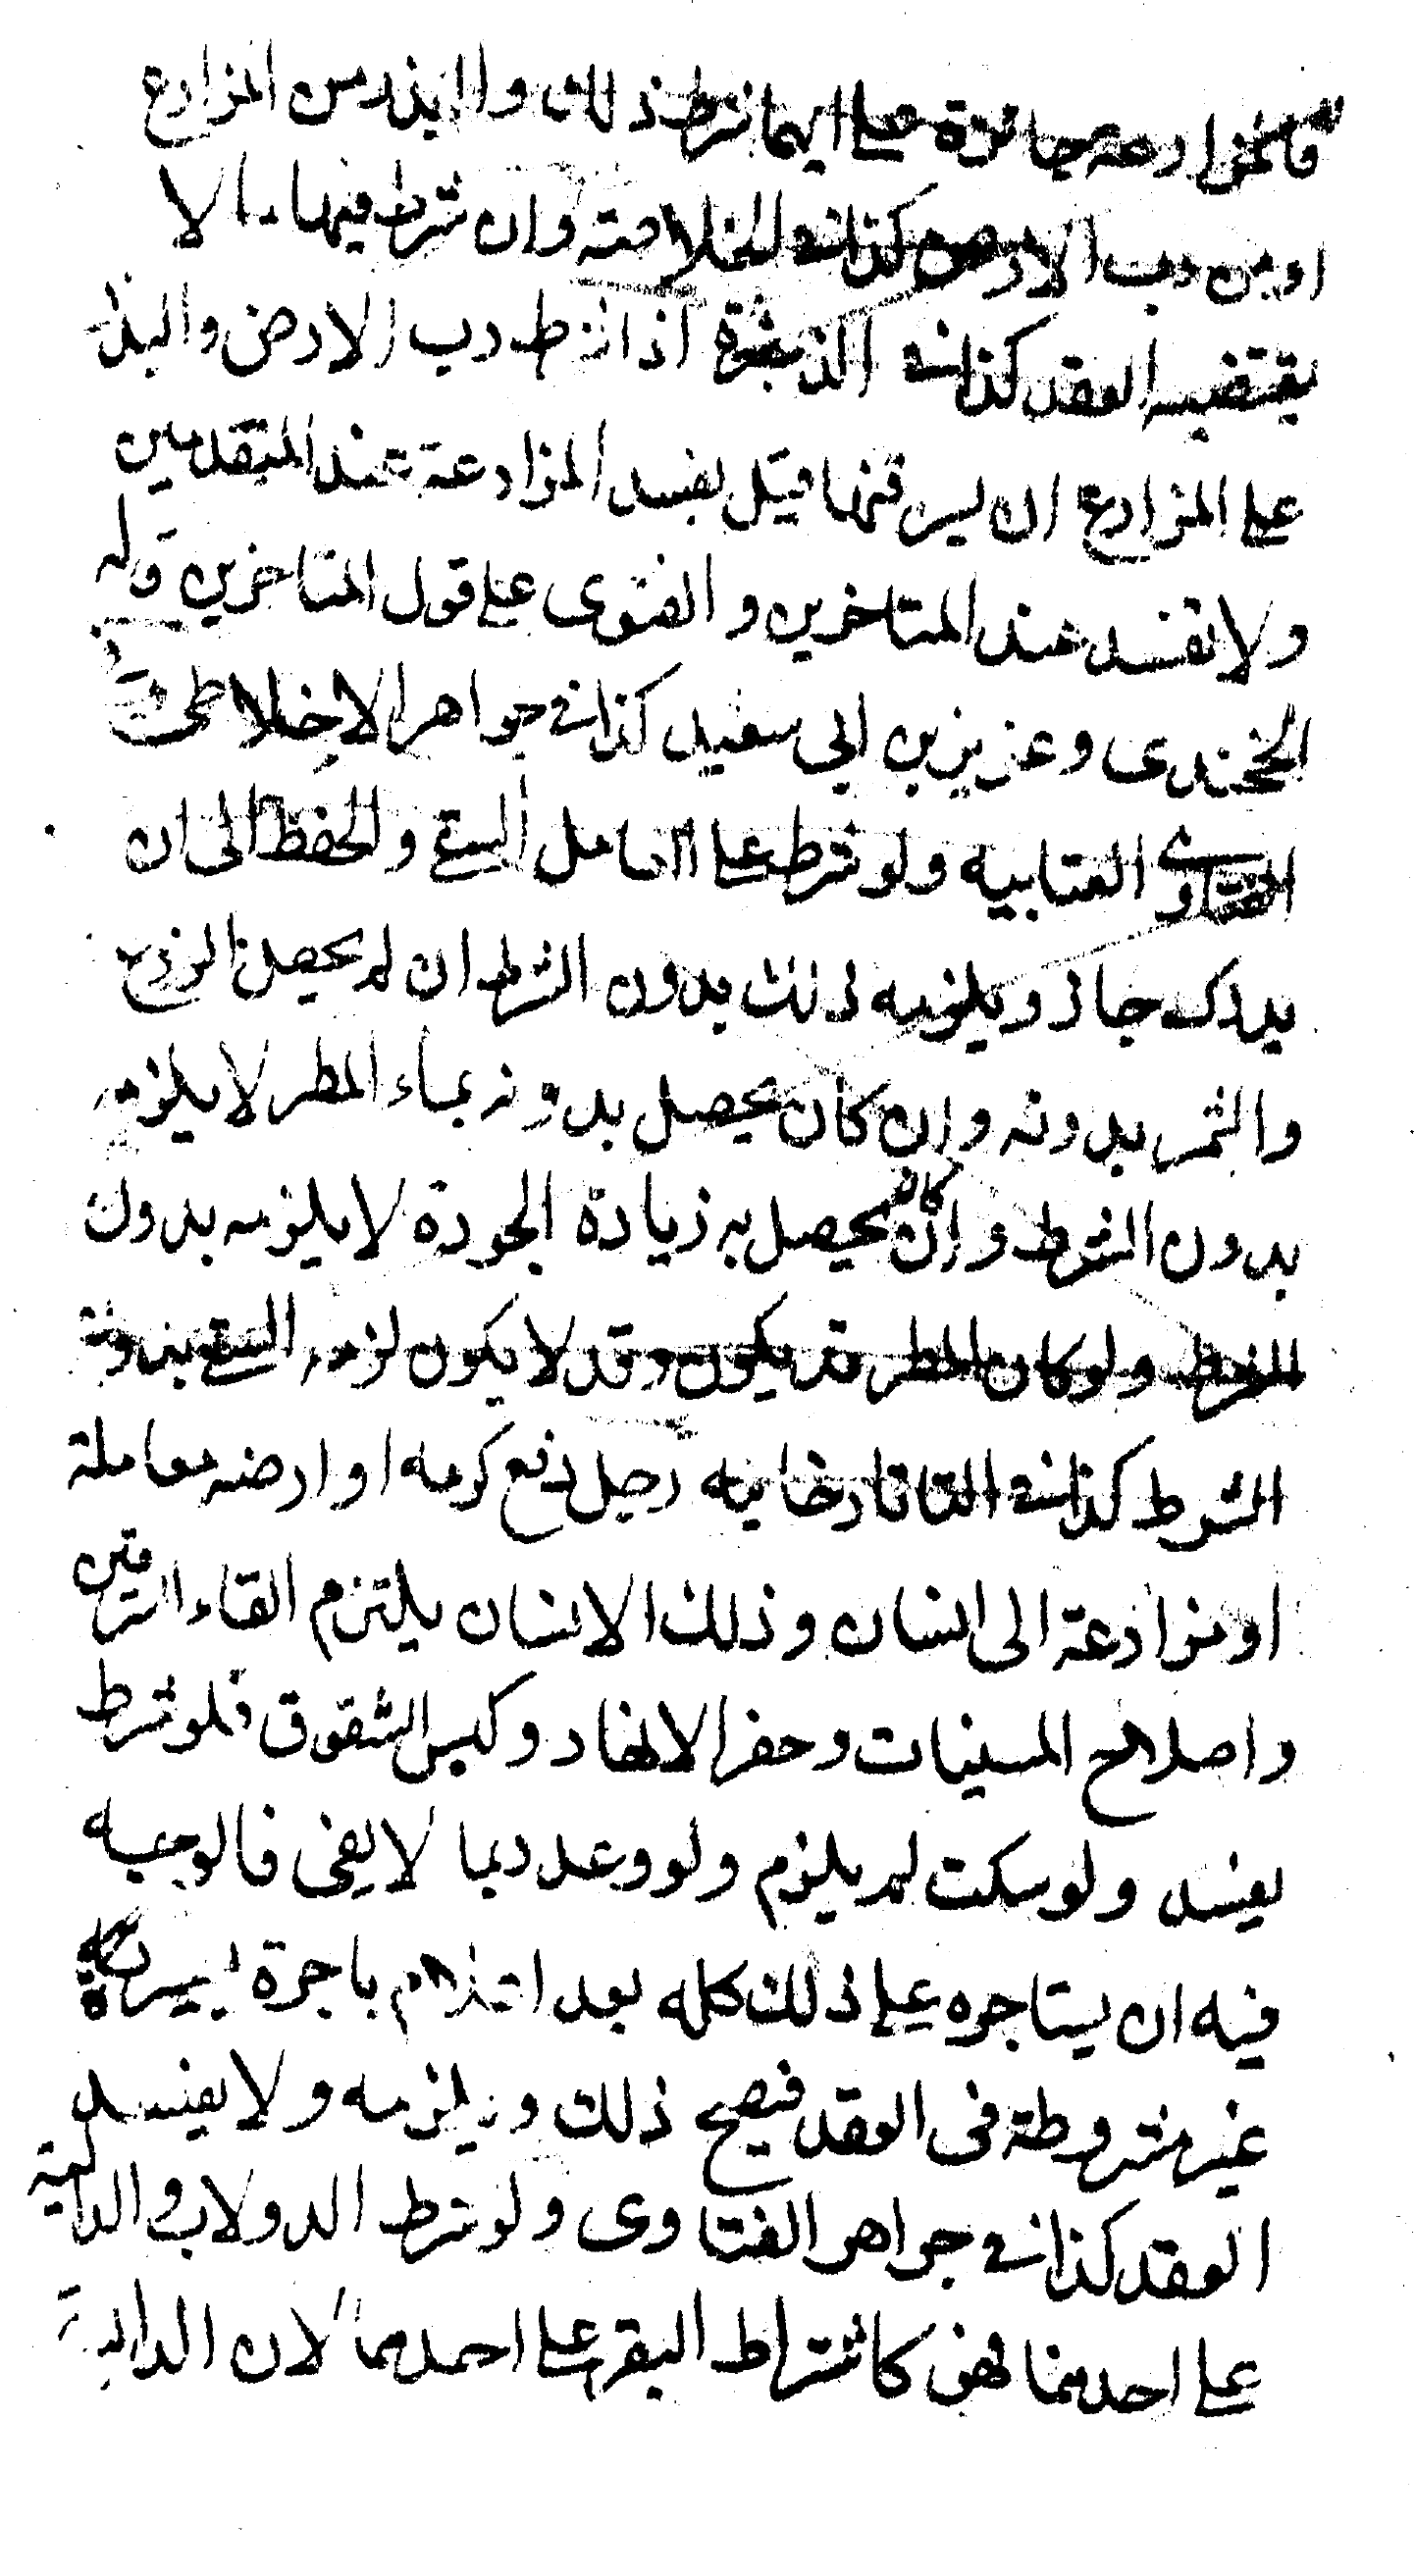 فالمزارعة جائزة على ايهما شرط ذلك والبذر من المزارع
او من رب الارض كذا في الخلاصة وان شرط فيها ما لا
يقتضيه العقد كذا في الذخيرة اذا شرط رب الارض والبذر
على المزارع ان يسرقنها قيل يفسد المزارعة عند المتقدمين
ولا تفسد عند المتاخرين و الفتوى على قول المتاخرين
الخجندى و عزيز بن ابي سعيد كذا في جواهر الاخلاطى
الفتاوى العتابيه ولو شرط على العامل السقي و الحفظ الى ان
يدرك جاز ويلزمه ذلك بدون الشرط ان لم يحصل الزرع
والثمر بدونه وان كان يحصل بدونه بماء المطر لا يلزمه
بدون الشرط وان كان يحصل به زيادة الجودة لا يلزمه بدون
الشرط ولو كان المطر قد يكون وقد لا يكون لزمه السقي بدون
الشرط كذا في التاتارخانيه رجل دفع كرمه او ارضه معاملة
او مزارعة الى انسان وذلك الانسان يلتزم القاء السرقين
واصلاح المسنيات وحفر الانهار وكبس الشقوق فلو شرط
يفسد ولو سكت لم يلزم ولو وعد ربما لا يفى فالوجه
فيه ان يستاجره على ذلك كله بعد اعلام باجرة يسيرة
غير مشروطة فى العقد فيصح ذلك ويلزمه ولا يفسد
العقد كذا في جواهر الفتاوى ولو شرط الدولاب و الدالية
على احدهما فهو كاشتراط البقر على احدهما لان الدابة